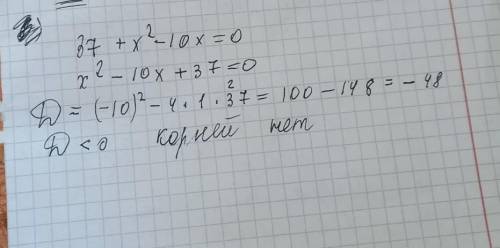 37 + x² - 10x = 0
x² - 10x + 37 = 0
D = (-10)² - 4 · 1 · 37 = 100 - 148 = -48
D < 0 корней нет